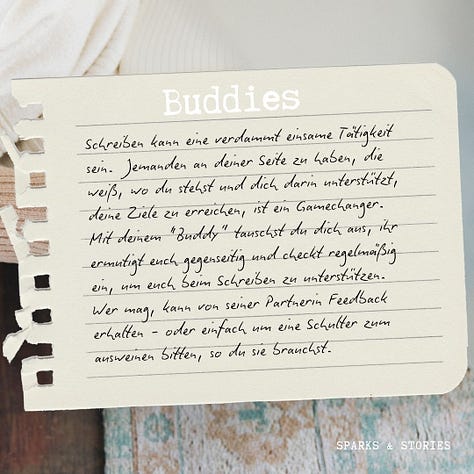 Buddies
Schreiben kann eine verdammt einsame Tätigkeit
sein. Jemanden an deiner Seite zu haben, die
weiß, wo du stehst und dich darin unterstützt,
deine Ziele zu erreichen, ist ein Gamechanger.
Mit deinem "Buddy" tauschst du dich aus, ihr
ermutigt euch gegenseitig und checkt regelmäßig
ein, um euch beim Schreiben zu unterstützen.
Wer mag, kann von seiner Partnerin Feedback
erhalten – oder einfach um eine Schulter zum
ausweinen bitten, so du sie brauchst.
SPARKS & STORIES